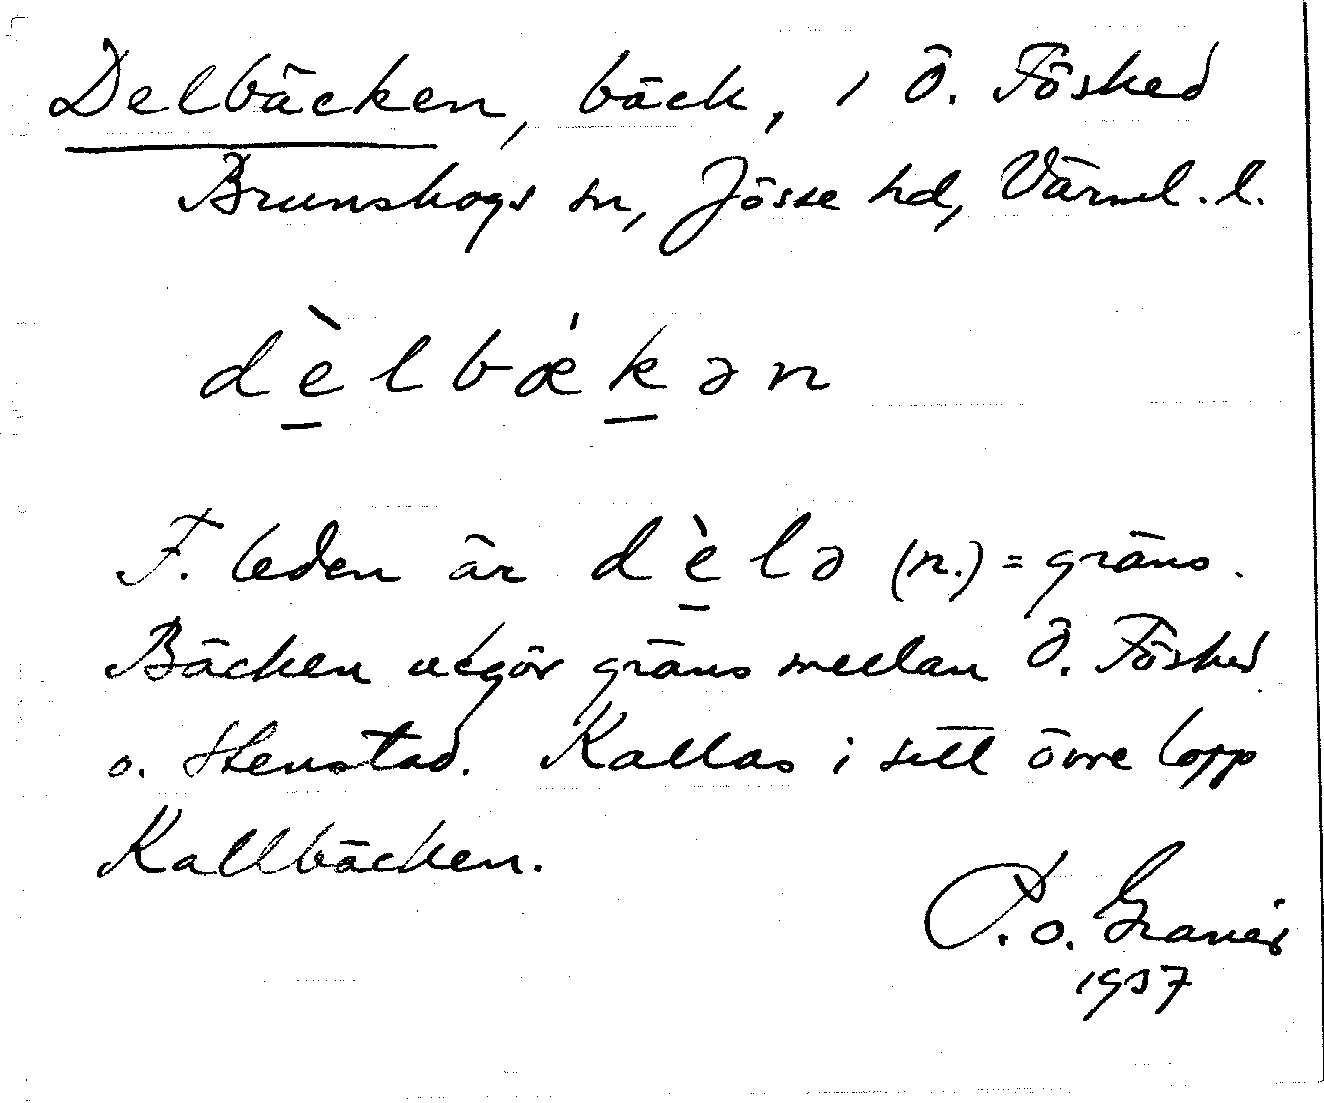 Delbäcken, bäck, i Ö. Fösked
Brunskogs sn, Jösse hd, Värml. l.
dèlbækən
F. leden är dèlə (n.) = gräns.
Bäcken utgör gräns mellan Ö. Fösked
o. Stenstad. Kallas i sitt övre lopp
Kallbäcken.
P. o. Granér
1937